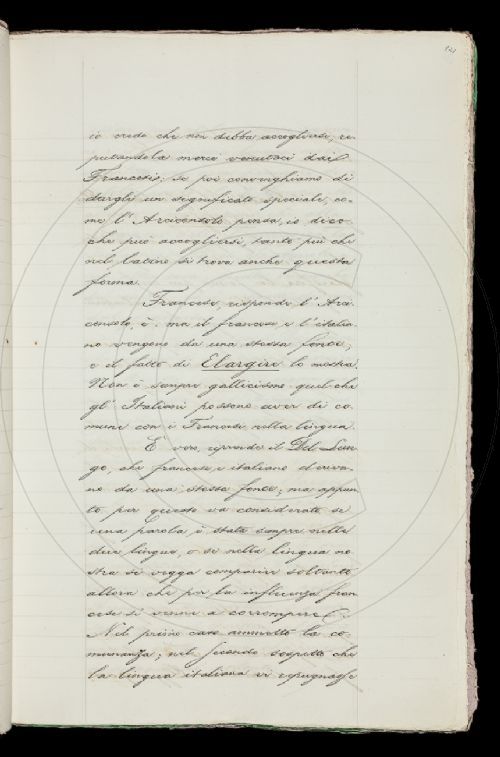 121
io credo che non debba accogliersi, re-
putandola merce venutaci dai
Francesi; se poi convenghiamo di
dargli un significato speciale, co-
me l'Arciconsolo pensa, io dico
che può accogliersi, tanto più che
nel latino si trova anche questa
forma.
Francese, risponde l'Arci-
consolo, è: ma il francese e l'italia-
no vengono da una stessa fonte,
e il fatto di Elargire lo mostra.
Non è sempre gallicismo quel che
gl'Italiani possono aver di co-
mune con i Francesi nella lingua.
È vero, riprende il Del Lun-
go, che francese e italiano deriva-
no da una stessa fonte; ma appun-
to per questo va considerato se
una parola è stata sempre nelle
due lingue, o se nella lingua no-
stra si vegga comparire soltanto
allora che per la influenza fran-
cese si venne a corrompere.
Nel primo caso ammetto la co-
munanza; nel secondo sospetto che
la lingua italiana vi repugnasse